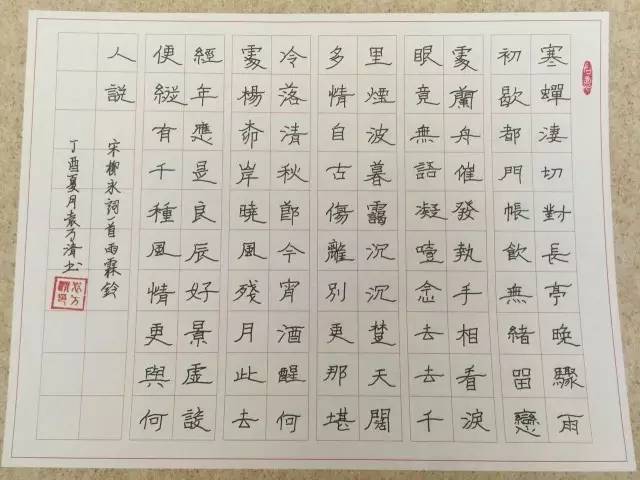 寒蟬淒切對長亭晚驟雨
初歇都門帳飲無緒留戀
處蘭舟催發執手相看淚
眼竟無語凝噎念去去千
里煙波暮靄沉沉楚天闊
多情自古傷離別更那堪
冷落清秋節今宵酒醒何
處楊柳岸曉風殘月此去
經年應是良辰好景虛設
便縱有千種風情更與何
人説
宋柳永詞一首雨霖鈴
丁酉夏月袁方清书